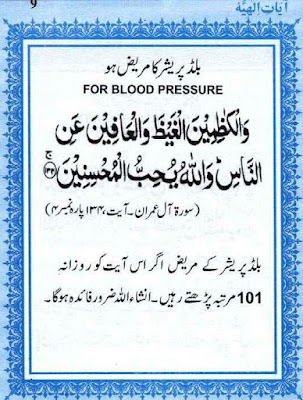 9
آیاتِ الٰہیّہ
بلڈ پریشر کا مریض ہو
FOR BLOOD PRESSURE
وَالْكٰظِمِيْنَ الْغَيْظَ وَالْعَافِيْنَ عَنِ
النَّاسِ ؕ وَاللّٰهُ يُحِبُّ الْمُحْسِنِيْنَ ۚ ﴿۱۳۴﴾
(سورۃ آل عمران۔ آیت، ۱۳۴ پارہ نمبر ۴)
بلڈ پریشر کے مریض اگر اس آیت کو روزانہ
101 مرتبہ پڑھتے رہیں۔ انشاء اللہ ضرور فائدہ ہوگا۔